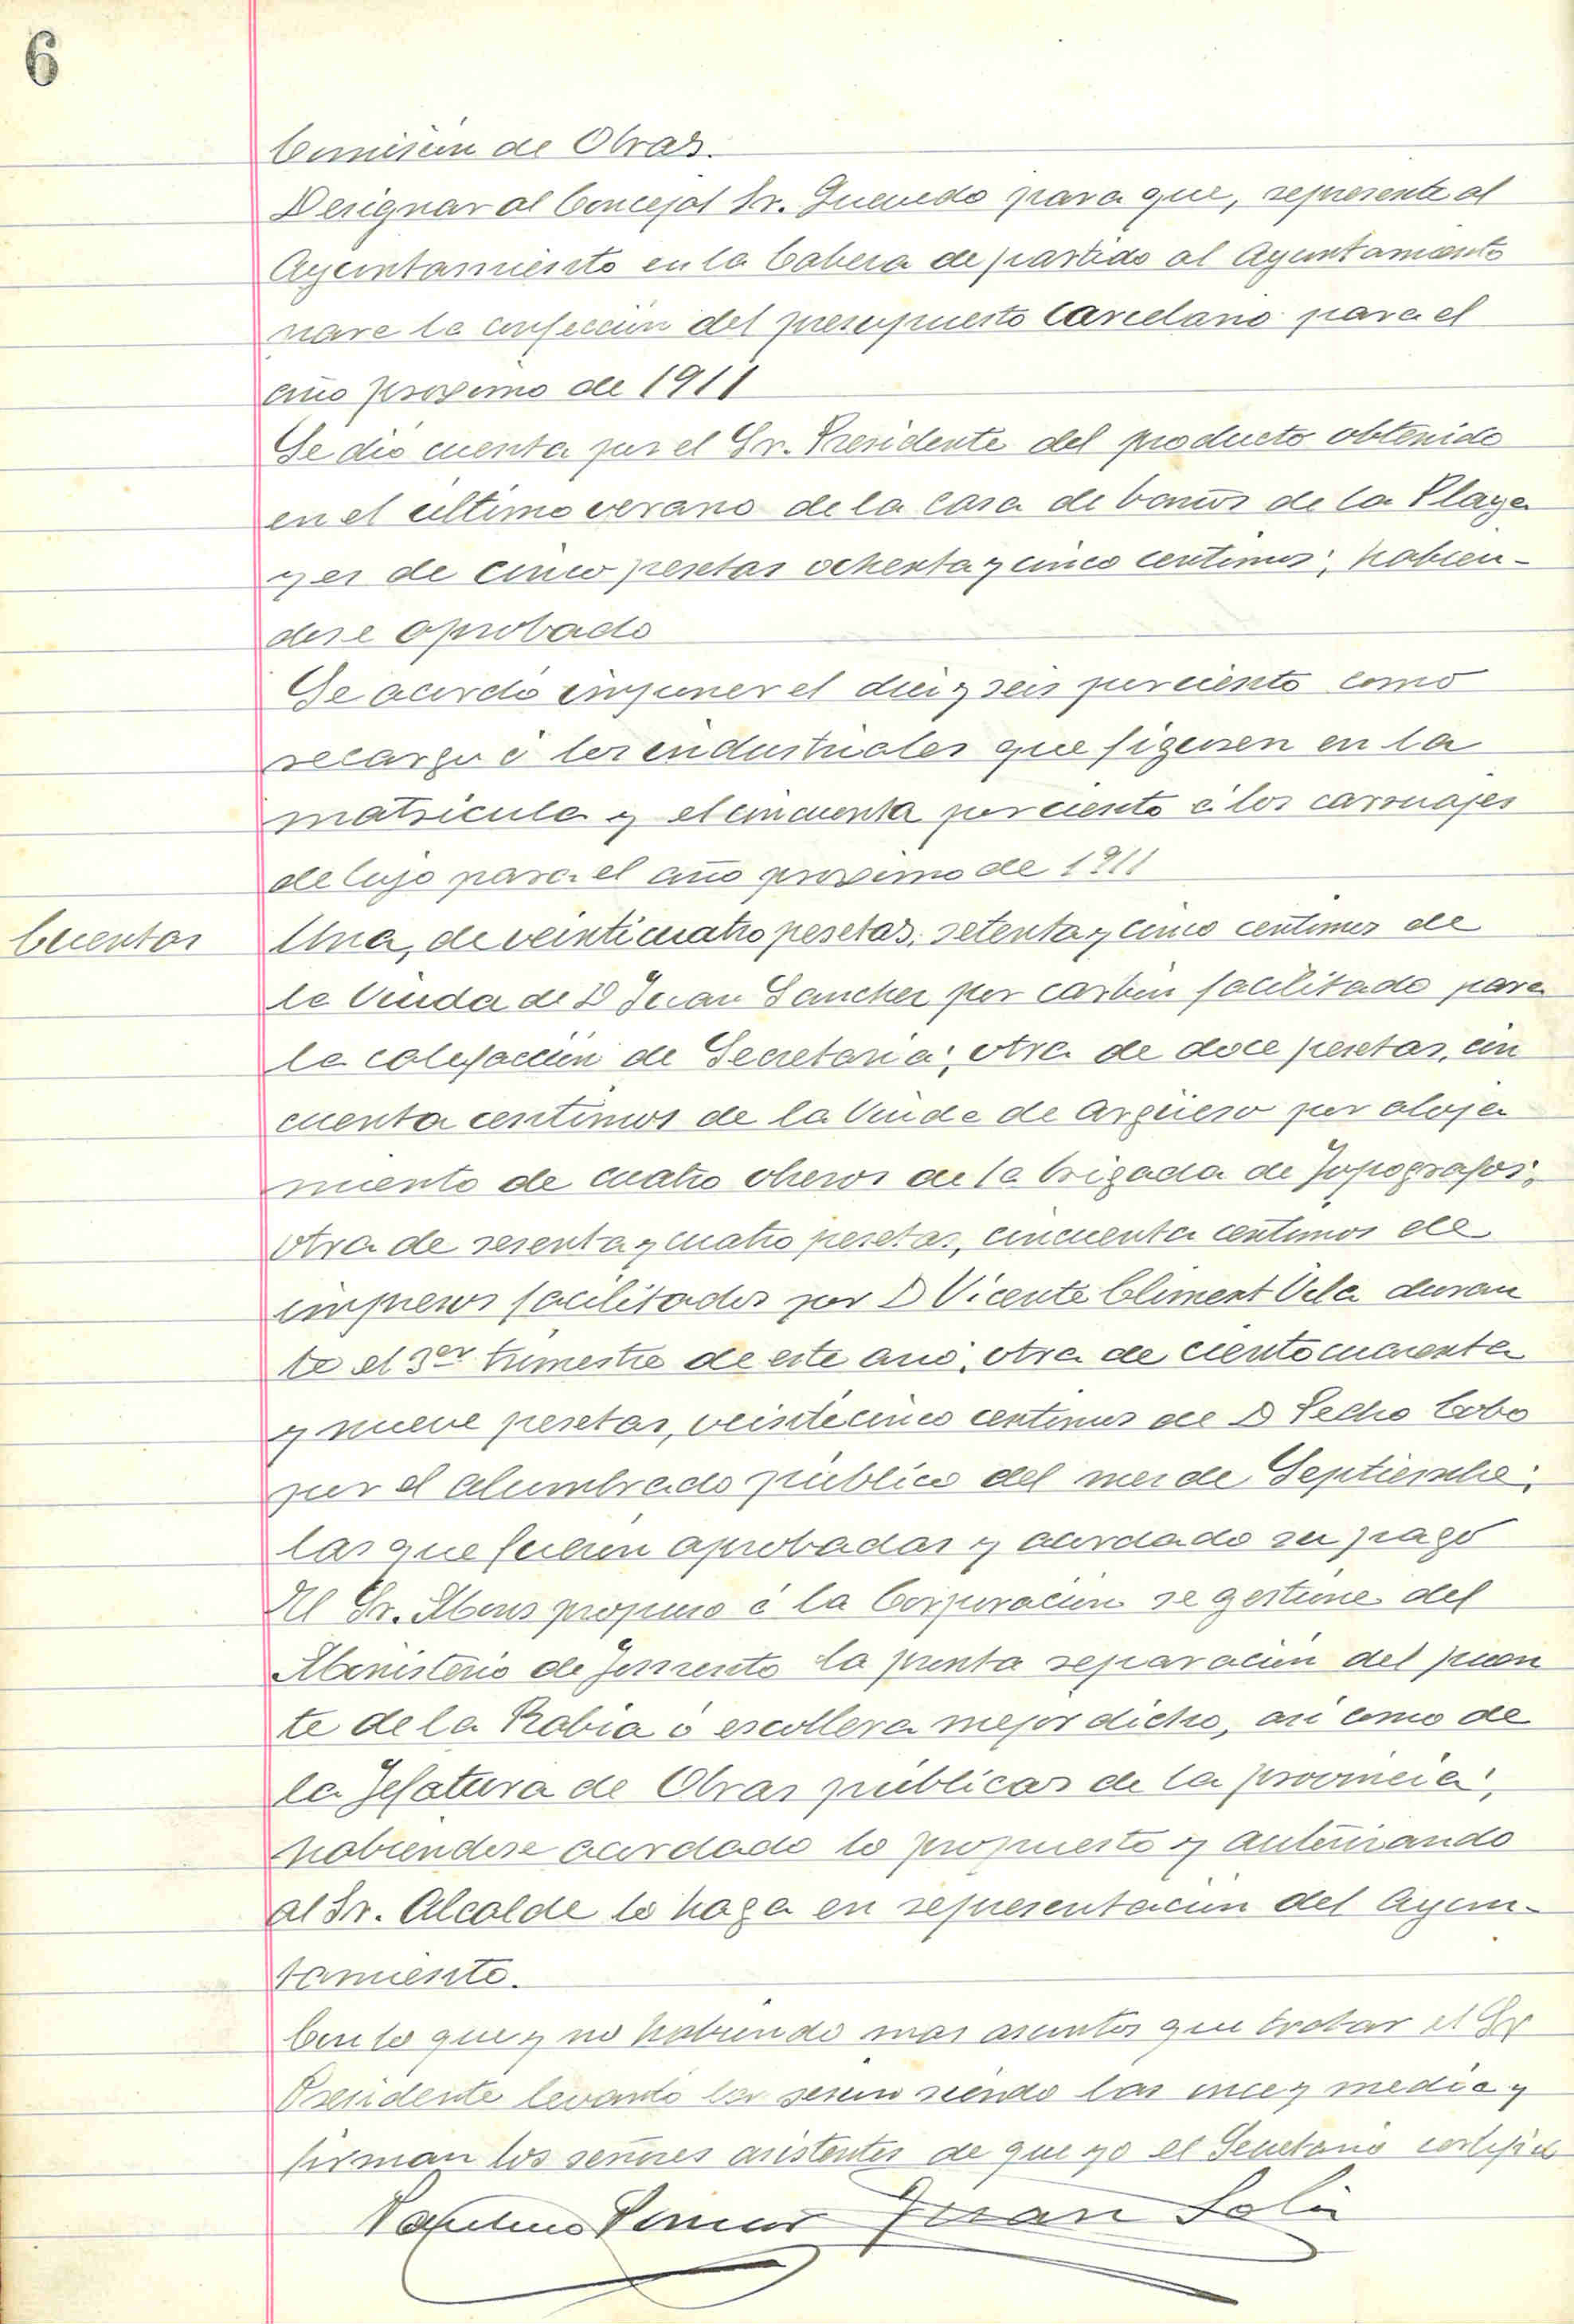 6
Comision de Obras.
Designar al Concejal Sr. Quevedo para que, represente al
Ayuntamiento en la Cabeza de partido al Ayuntamiento
para la confección del presupuesto Carcelario para el
año proximo de 1911
Se dió cuenta por el Sr. Presidente del producto obtenido
en el último verano de la casa de baños de la Playa
y es de cinco pesetas ochenta y cinco centimos; habien-
dose aprobado
Se acordó imponer el diez y seis por ciento como
recargo á los industriales que figuren en la
matricula y el cincuenta por ciento á los carruajes
de lujo para el año proximo de 1911
Cuentas
Una, de veinticuatro pesetas, setenta y cinco centimos de
la Viuda de D Juan Sanchez por carbón facilitado para
la calefacción de Secretaria; otra de doce pesetas, cin
cuenta centimos de la Viuda de Argüeso por aloja
miento de cuatro obreros de la brigada de Topografos;
otra de sesenta y cuatro pesetas, cincuenta centimos de
impresos facilitados por D Vicente Climent Vila duran
te el 3er trimestre de este año; otra de ciento cuarenta
y nueve pesetas, veinticinco centimos de D Pedro Cobo
por el alumbrado público del mes de Septiembre;
las que fueron aprobadas y acordado su pago
El Sr. propuso á la Corporación se gestione del
Ministerio de Fomento la pronta separación del puen
te de la Rabia ó escollera mejor dicho, asi como de
la Jefatura de Obras públicas de la provincia;
habiendose acordado lo propuesto y autorizando
al Sr. Alcalde lo haga en representacion del Ayun-
tamiento.
Con lo que y no habiendo mas asuntos que tratar el Sr
Presidente levantó la sesion siendo las once y media y
firman los señores asistentes de que yo el Secretario certifico
Juan Solis